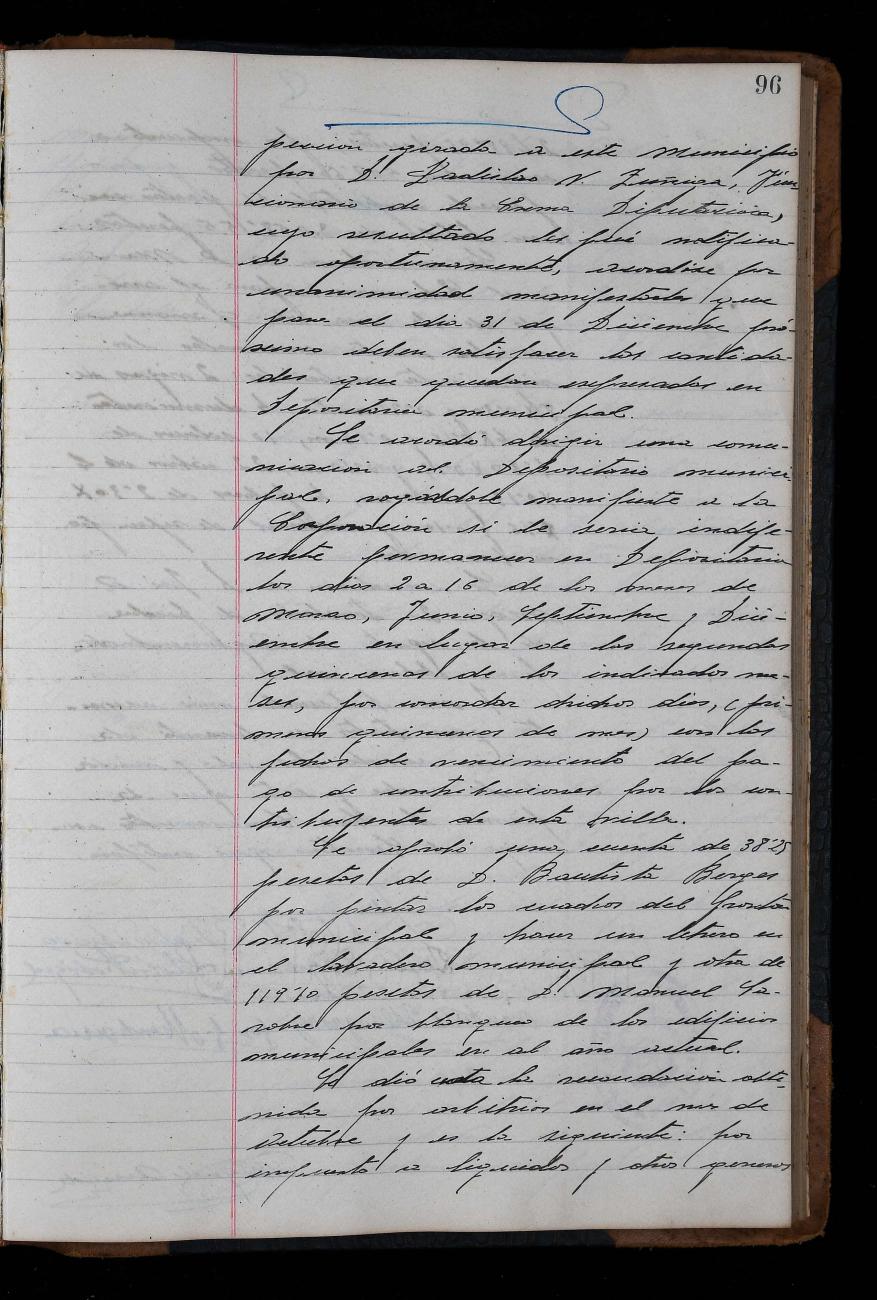 96
peccion girada a este Municipio
por D. Ladislao N. Zuñiga, Fun-
cionario de la Excma Diputación,
cuyo resultado les fué notifica-
do oportunamente, acordóse por
unanimidad manifestarles que
para el dia 31 de Diciembre pró-
ximo deben satisfacer las cantida-
des que quedan expresadas en
Depositaria municipal.
Se acordó dirigir una comu-
nicacion al Depositario munici-
pal, rogándole manifieste a la
Corporación si le seria indife-
rente permanecer en Depositaria
los dias 2 a 16 de los meses de
Marzo, Junio, Septiembre y Dici-
embre en lugar de las segundas
quincenas de los indicados me-
ses, por concordar dichos dias, (pri-
meras quincenas de mes) con las
fechas de vencimiento del pa-
go de contribuciones por los con-
tribuyentes de esta villa.
Se aprobó una cuenta de 38'25
pesetas de D. Bautista Berges
por pintar los cuadros del frontón
municipal y hacer un letrero en
el lavadero municipal y otra de
119'70 pesetas de D. Manuel La-
robe por blanqueo de los edificios
municipales en al año actual.
Se dió cuenta la recaudacion obte-
nida por arbitrios en el mes de
Octubre y es la siguiente: por
impuesto a liquidos y otros generos